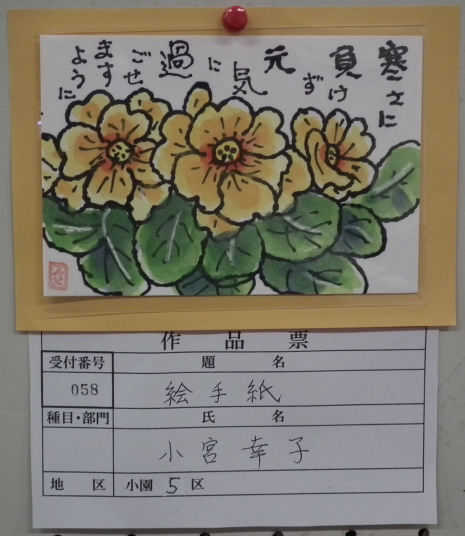 寒さに
負けず
元気に
過ごせ
ますように
作品票
受付番号 題名
058 絵手紙
種目・部門 氏名
小宮幸子
地区 小園5区